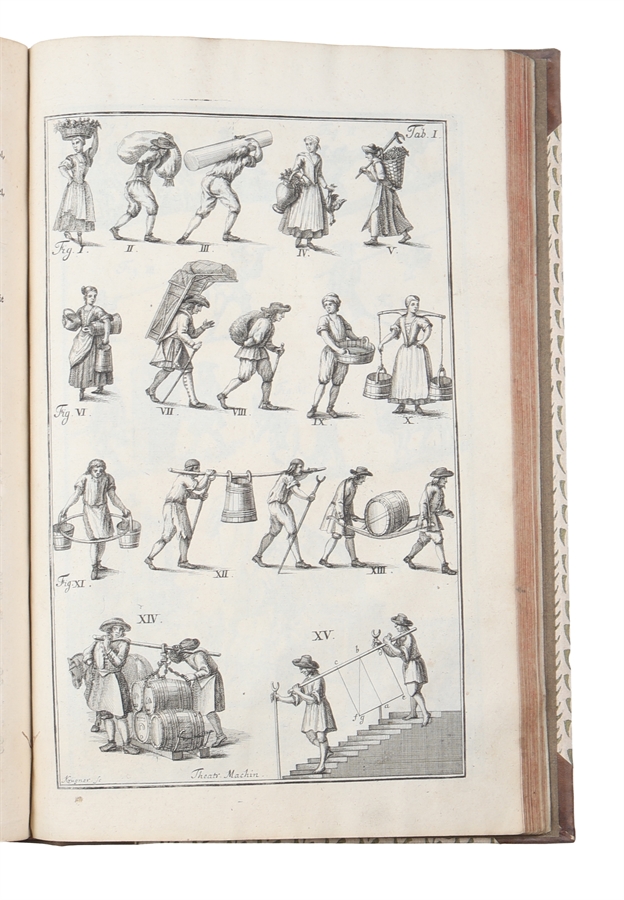 Tab. I
Fig. I. II. III. IV. V.
Fig. VI VII VIII IX. X.
Fig. XI XII. XIII.
XIV. XV.
c b
a e
f g
Theatr. Machin